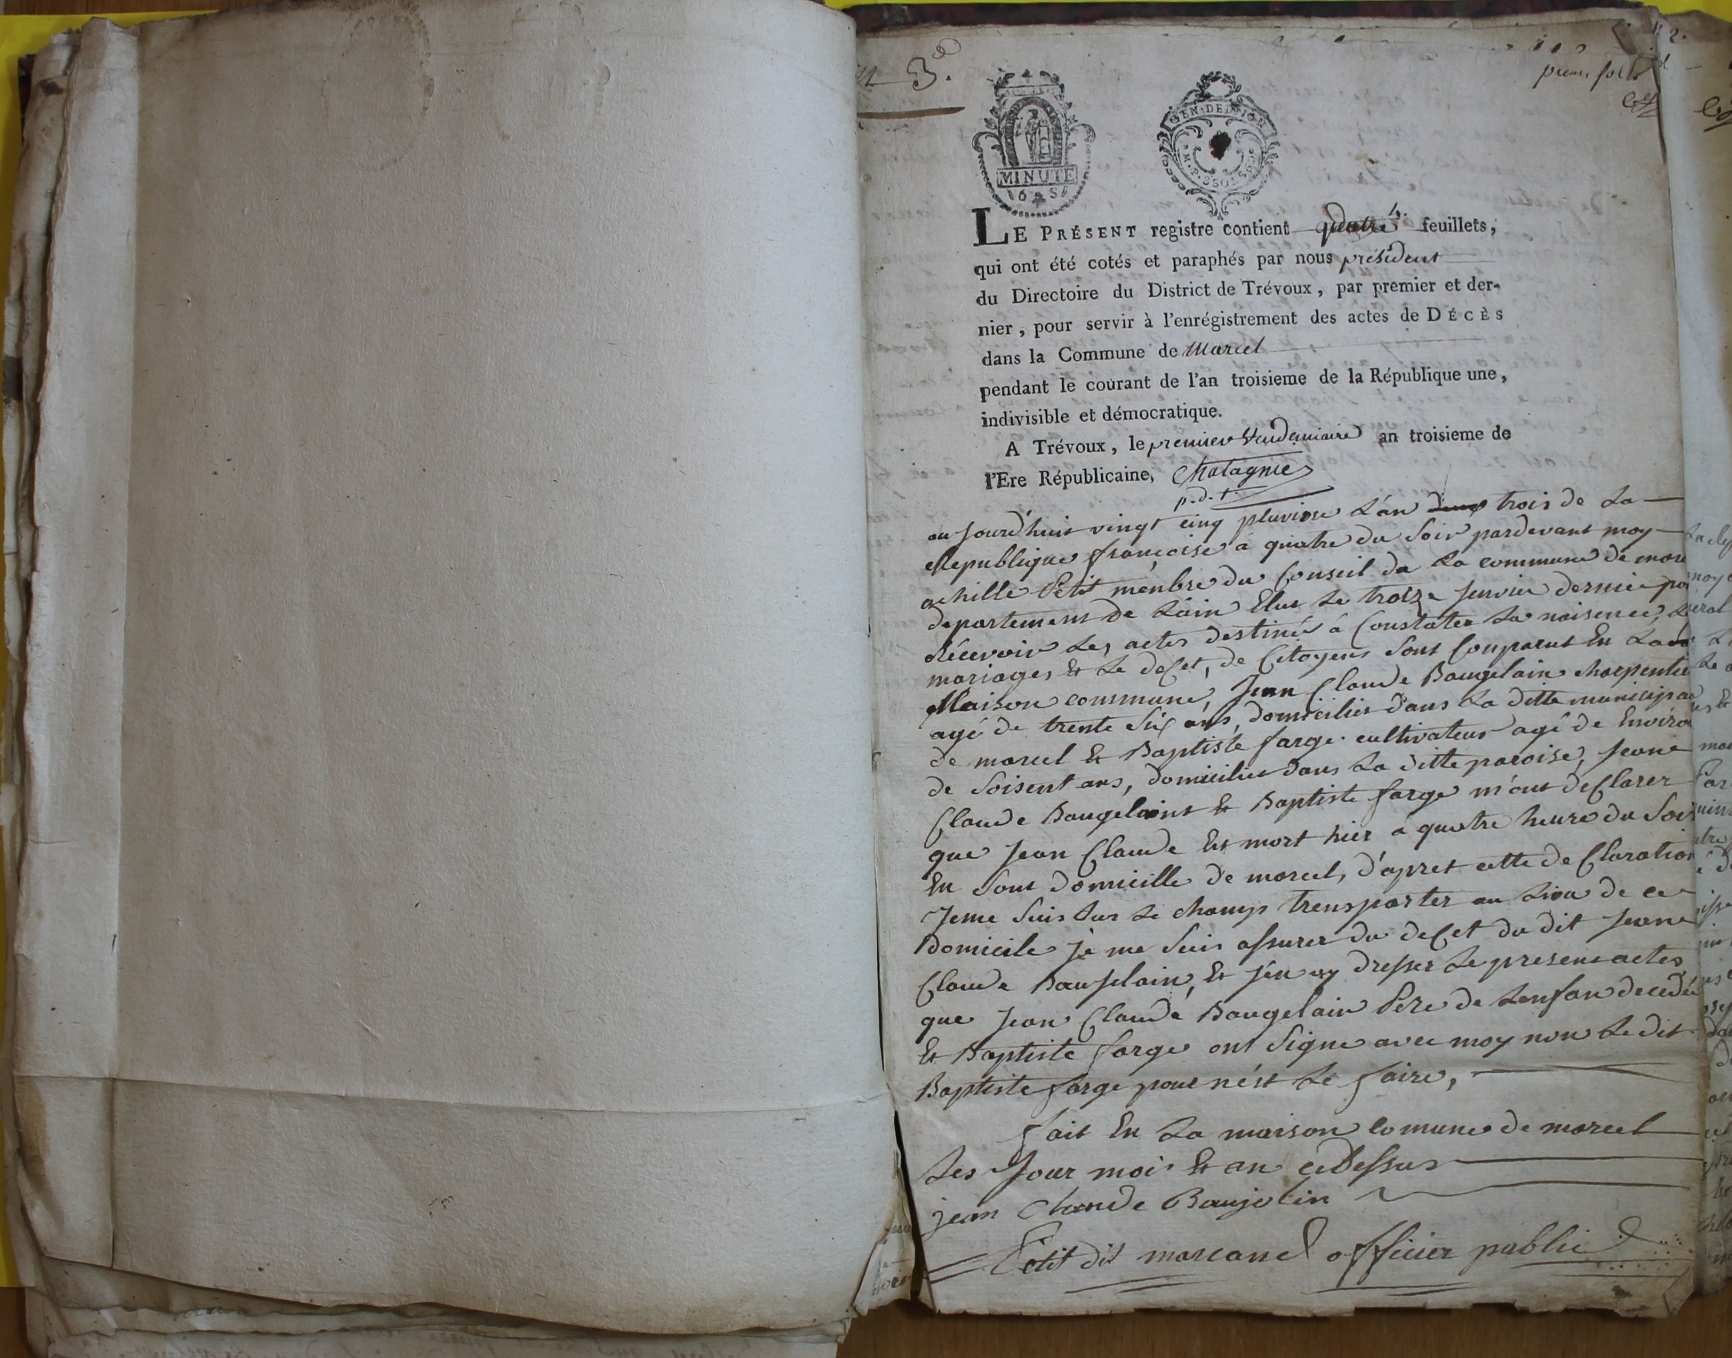 3.
MINUTE
LE PRÉSENT registre contient quatre feuillets,
qui ont été cotés et paraphés par nous président
du Directoire du District de Trévoux, par premier et der-
nier, pour servir à l'enrégistrement des actes de DÉCÈS
dans la Commune de Marcel
pendant le courant de l'an troisieme de la République une,
indivisible et démocratique.
A Trévoux, le premier Vendemiaire an troisieme de
l'Ere Républicaine, Chatagnie
p.d.t.
au jourd'huit vingt cinq pluviose L'án trois de La
Republique françoise a quatre du Soir pardevant moy
achille Petit menbre du Conseil da La commune de
departement de L'ain Elus Le troize Jenvier dernie
Récevoir Les actes destinés á Constater La naisence,
mariages et Le deCet, de Citoyens Sont Conparut En La
Maison commune, Jean Claude Baugelain charpentie
agé de trente Six ans, domicilies dans La ditte municipa
de marcel Et Baptiste farge cultivateur agé de Enviro
de Soisent ans, domicilies dans La ditte paroise, Jeane
Claude Baugelaint Et Baptiste farge m'ont deClarer
que Jean Claude Est mort hier a quatre heure du Soir
En Sont domicille de marcel, d'apret cette deClaration
Jeme Suis Sur Le champ trensporter au Lieu de ce
domicile je me Suis assurer du deCet du dit Jeane
Claude Baujelain, Et j'en ay dresser Le present actes
que Jean Claude Baugelain Pere de Lenfan decedée
Et Baptiste farge ont Signe avec moy non Le dit
Baptiste farge pour nést Le faire,
fait En La maison comune de marcel
Les Jour moi Et an ci Dessus
jean Claude Baujolin
Petit dit marcand officier public